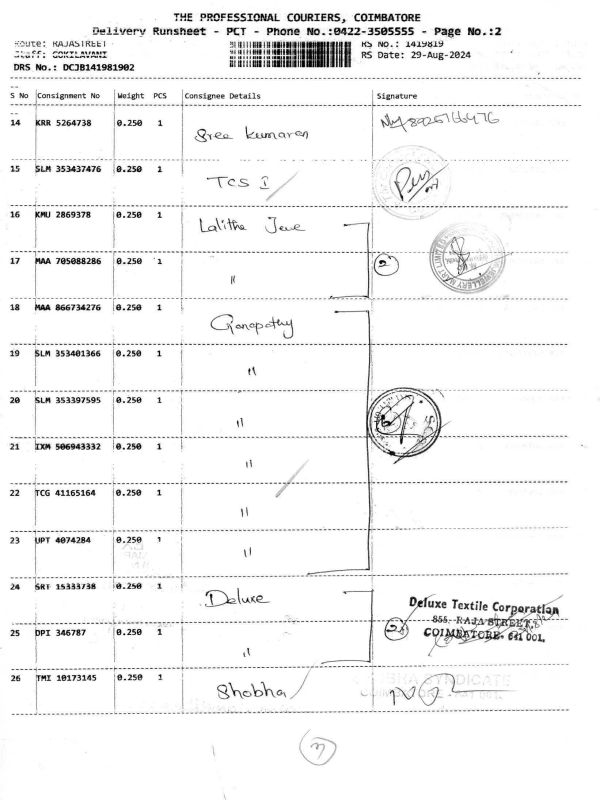 THE PROFESSIONAL COURIERS, COIMBATORE
Delivery Runsheet - PCT - Phone No.:0422-3505555 - Page No.:2
Route: RAJASTREET RS No.: 1419819
Staff: GOKILAVANI RS Date: 29-Aug-2024
DRS No.: DCJB141981902
S No Consignment No Weight PCS Consignee Details Signature
14 KRR 5264738 0.250 1 Sree Kumaran
15 SLM 353437476 0.250 1 TCS I
16 KMU 2869378 0.250 1 Lalitha Jewe
17 MAA 705088286 0.250 1 " 2
18 MAA 866734276 0.250 1 Ganapathy
19 SLM 353401366 0.250 1 "
20 SLM 353397595 0.250 1 "
21 IXM 506943332 0.250 1 "
22 TCG 41165164 0.250 1 "
23 UPT 4074284 0.250 1 "
24 SRT 15333738 0.250 1 Deluxe
Deluxe Textile Corporation
855, RAJA STREET,
COIMBATORE- 641 001.
25 DPI 346787 0.250 1 "
26 TMI 10173145 0.250 1 Shobha
SYNDICATE